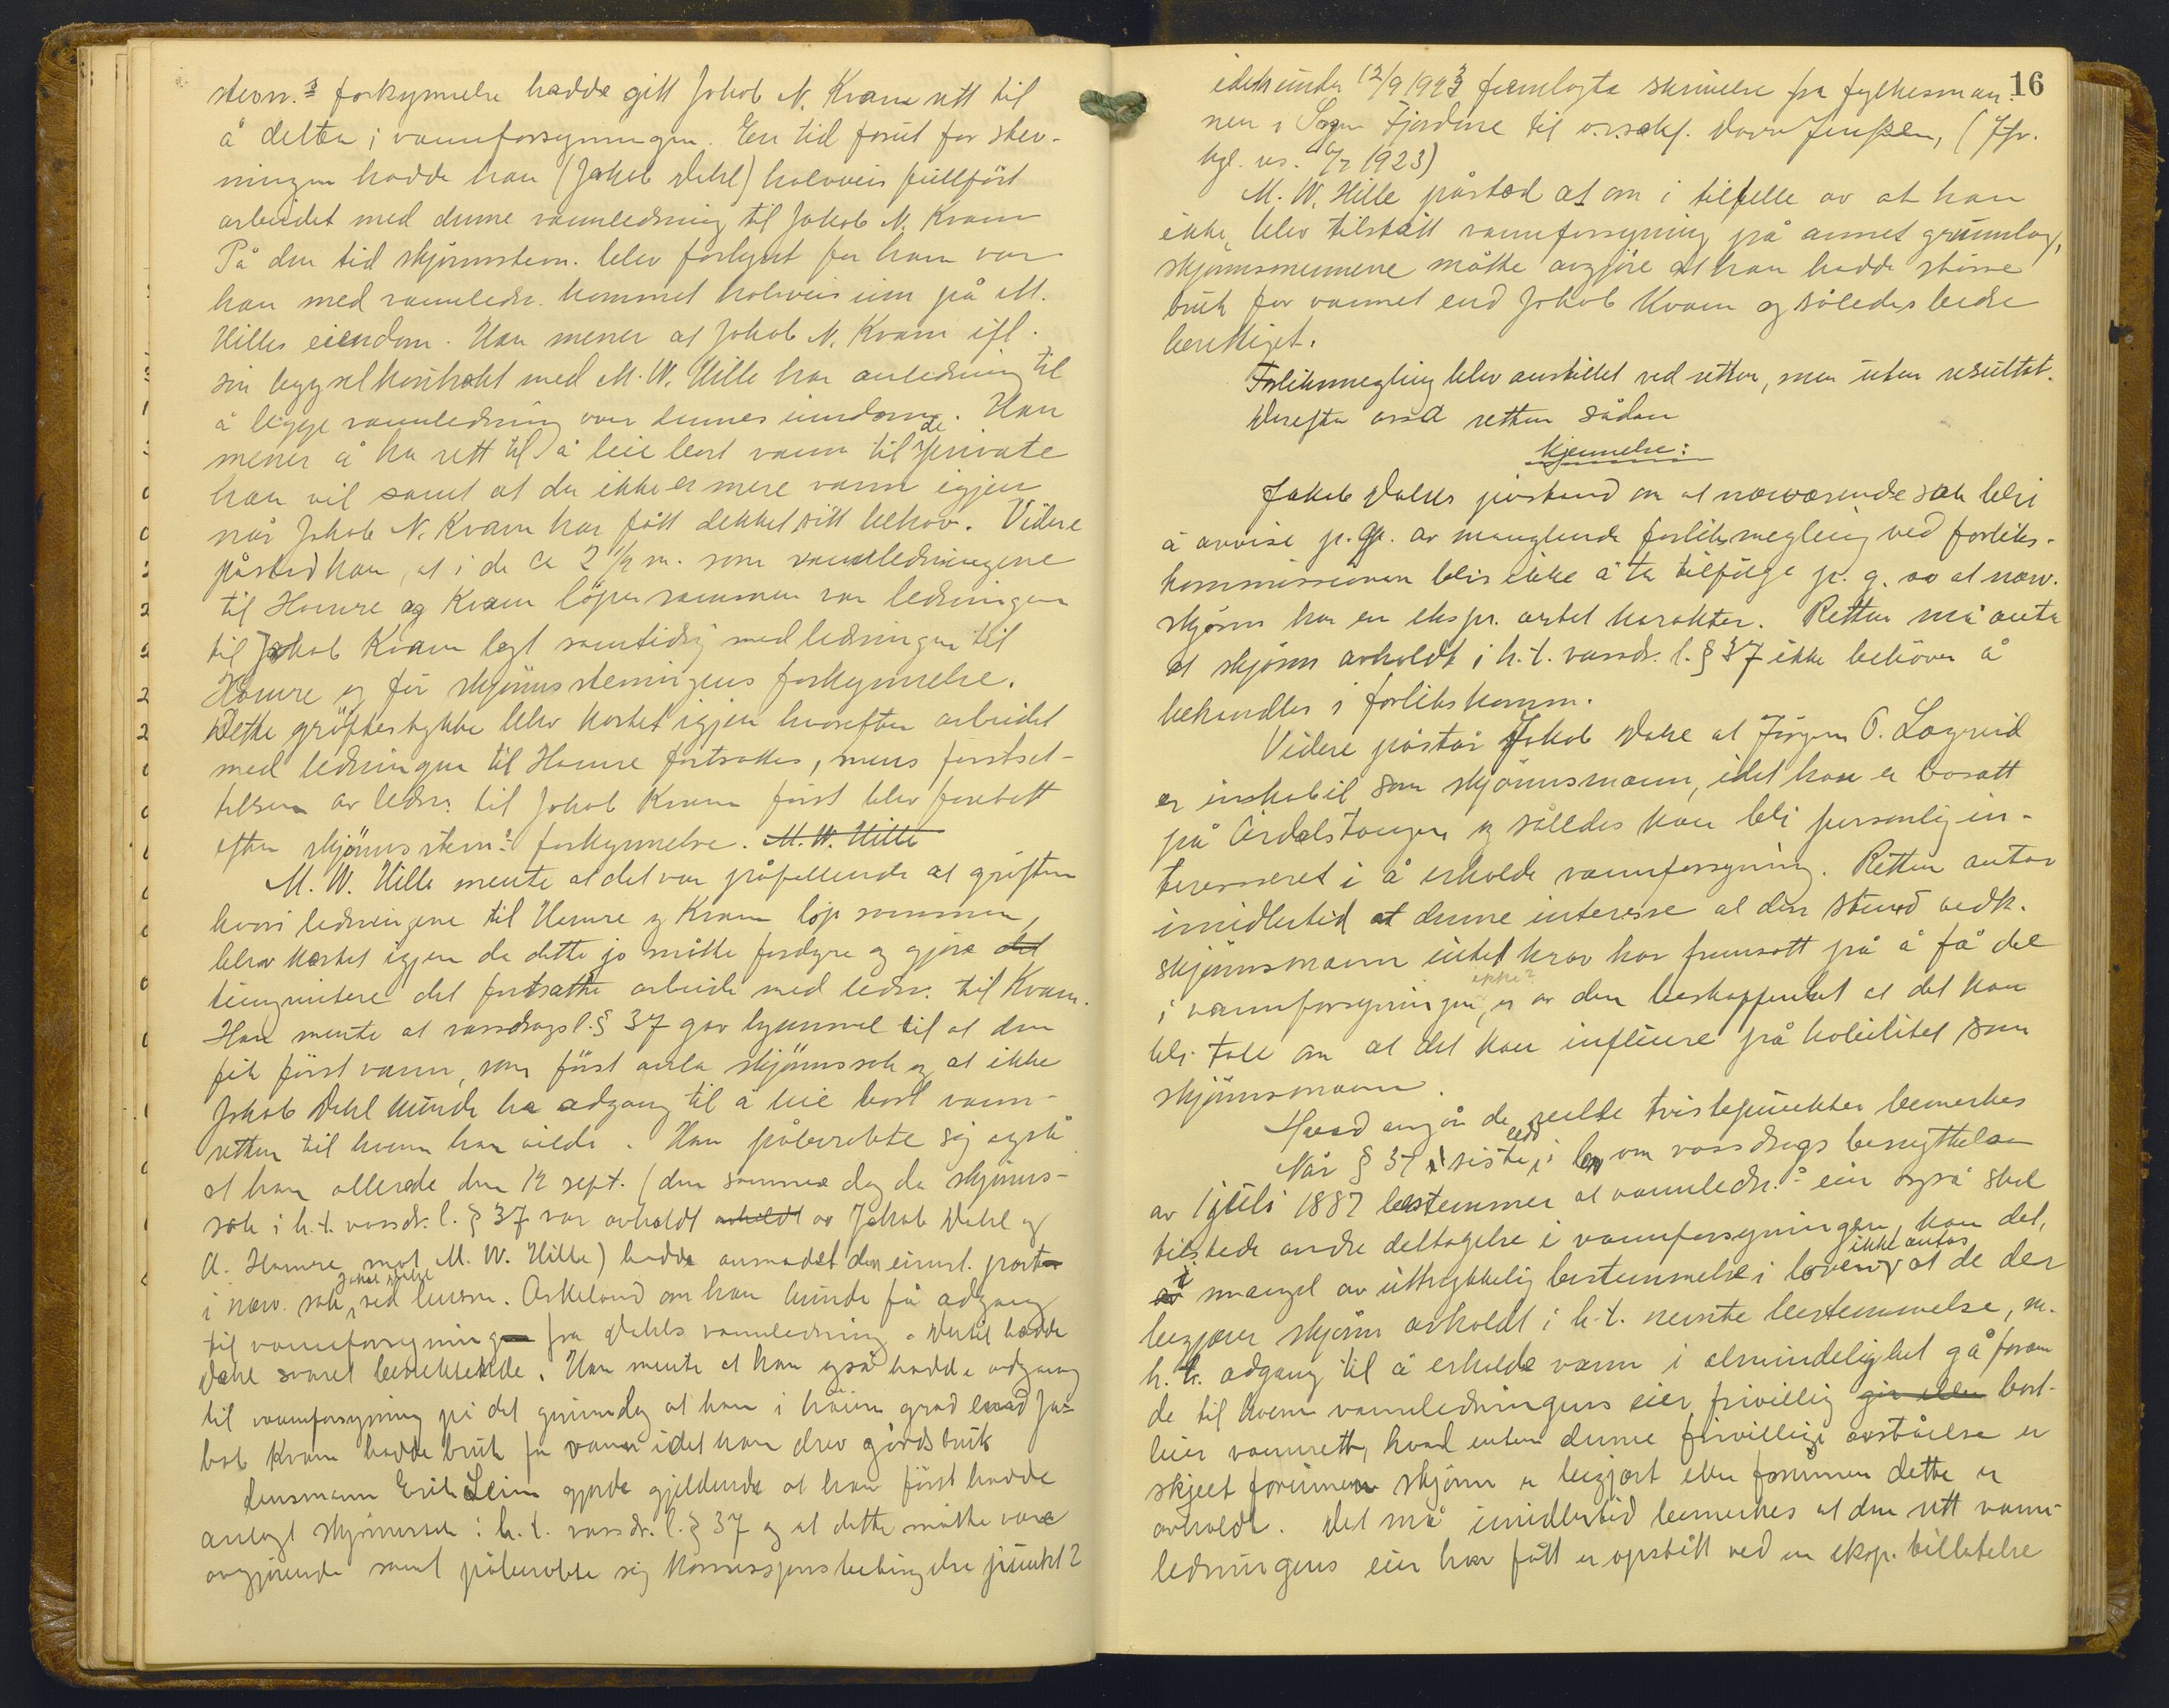 stevn.s forkynnelse hadde gitt Jakob N. Kvam rett til
å delta i vannforsyningen. En tid forut for stev-
ningen hadde han (Jakob Dahl) halvveis fullfört
arbeidet med denne vannledning til Jakob N. Kvam
På den tid skjönnstevn. blev forkynt for ham var
han med vannledn. kommet halvveis inn på M.
Hilles eiendom. Han mener at Jakob N. Kvam ifl.
sin bygselkontrakt med M. W. Hille har anledning til
å legge vannledning over dennes eiendom. Han
mener å ha rett til å leie bort vann til de private
han vil samt at der ikke er mere vann igjen
når Jakob N. Kvam har fått dekket sitt behov. Videre
påstod han, at i de ca 2 1/2 m. som vannledningene
til Hamre og Kvam löper sammen var ledningen
til Jakob Kvam lagt samtidig med ledningen til
Hamre og för skjönnsstevningens forkynnelse.
Dette gröftestykke blev kastet igjen hvorefter arbeidet
med ledningen til Hamre fortsattes, mens fortset-
telsen av ledn. til Jakob Kvam först blev foretatt
efter skjönnsstevn.s forkynnelse. M. W. Hille
M. W. Hille mente at det var påfallende at gröften
hvori ledningene til Hamre og Kvam löp sammen,
blev kastet igjen da dette jo måtte fordyre og gjöre det
tungvintere det fortsatte arbeide med ledn. til Kvam.
Han mente at vassdragsl. § 37 gav hjemmel til at den
fik först vann, som först anla skjönnssak og at ikke
Jakob Dahl kunde ha adgang til å leie bort vann-
retten til hvem han vilde. Han påberobte sig også
at han allerede den 12 sept. (den samme dag da skjönns-
sak i h. t. vassdr. l. § 37 var avholdt avholdt av Jakob Dahl og
A. Hamre mot M. W. Hille) hadde anmodet den innst. part
i nærv. sak, Jakob Dahl ved lensm. Askeland om han kunde få adgang
til vannforsyning fra Dahls vannledning. Dertil hadde
Dahl svaret benektende. Han mente at han også hadde adgang
til vannforsyning på det grunnlag at han i höiere grad enn Ja-
kob Kvam hadde bruk for vann idet han drev gårdsbruk
Lensmann Erik Leim gjorde gjeldende at han först hadde
anlagt skjönnssak i h. t. vassdr. l. § 37 og at dette måtte være
avgjörende samt påberobte sig konsesjonsbetingelse punkt 2
16
idet under 12/9 1923 fremlagte skrivelse fra fylkesman-
nen i Sogn Fjordane til o.r.sakf. Jenssen, (Jfr.
kgl. res. 1923)
M. W. Hille påstod at om i tilfelle av at han
ikke blev tilstått vannforsyning på annet grunnlag,
skjönnsmennene måtte avgjöre at han hadde större
bruk for vannet end Jakob Kvam og således bedre
berettiget.
Forliksmegling blev anstillet ved retten, men uten resultat.
Derefter avsa retten sådan
kjennelse:
Jakob Dahls påstand om at nærværende sak blir
å avvise p. gr. av manglende forliksmegling ved forliks-
kommissionen blir ikke å ta tilfölge p. g. av at nærv.
skjönn har en ekspr. artet karakter. Retten må anta
at skjönn avholdt i h. t. vassdr. l. § 37 ikke behöver å
behandles i forlikskomm.
Videre påstår Jakob Dahl at Jörgen O. Lægreid
er inhabil som skjönnsmann, idet han er bosatt
på Årdalstangen og således kan bli personlig in-
teresseret i å erholde vannforsyning. Retten antar
imidlertid at denne interesse al den stund vedk.
skjönnsmann intet krav har fremsatt på å få del
i vannforsyningen, ikke? er av den beskaffenhet at det kan
bli tale om at det kan influere på habilitet som
skjönnsmann.
Hvad angår de reelle tvistepunkter bemerkes
Når § 37 siste ledd i lov om vassdrags benyttelse
av 1 juli 1887 bestemmer at vannledn.s eier også skal
tilstede andre deltagelse i vannforsyningen, kan det,
av i mangel av uttrykkelig bestemmelse i loven, ikke antas at de der
begjærer skjönn avholdt i h. t. nevnte bestemmelse, m.
h. t. adgang til å erholde vann i almindelighet gå foran
de til hvem vannledningens eier frivillig gir eller bort-
leier vannrett, hvad enten denne frivillige avståelse er
skjeet forinnen skjönn er begjært eller forinnen dette er
avholdt. Det må imidlertid bemerkes at den rett vann-
ledningens eier har fått er opstått ved en eksp. tillatelse